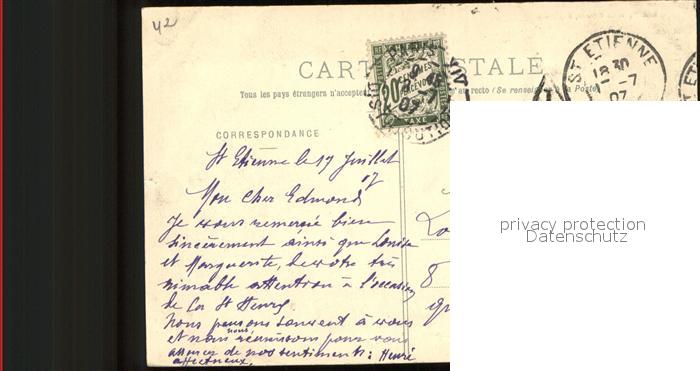 42
CARTE POSTALE
Tous les pays étrangers n'accepte au recto (Se renseigner à la Poste)
ST ETIENNE
18 30
-7
07
20
CENTIMES
PERCEVOIR
TAXE
CORRESPONDANCE
St Etienne le 17 Juillet
07
Mon Cher Edmond
Je vous remercie bien
sincèrement ainsi que Louise
et Marguerite, de votre très
aimable attention à l'occasion
de la St Henri
Nous pensons souvent à vous
et nous réunissons pour vous
assurer de nos sentiments : Henri
affectueux.
8
privacy protection
Datenschutz